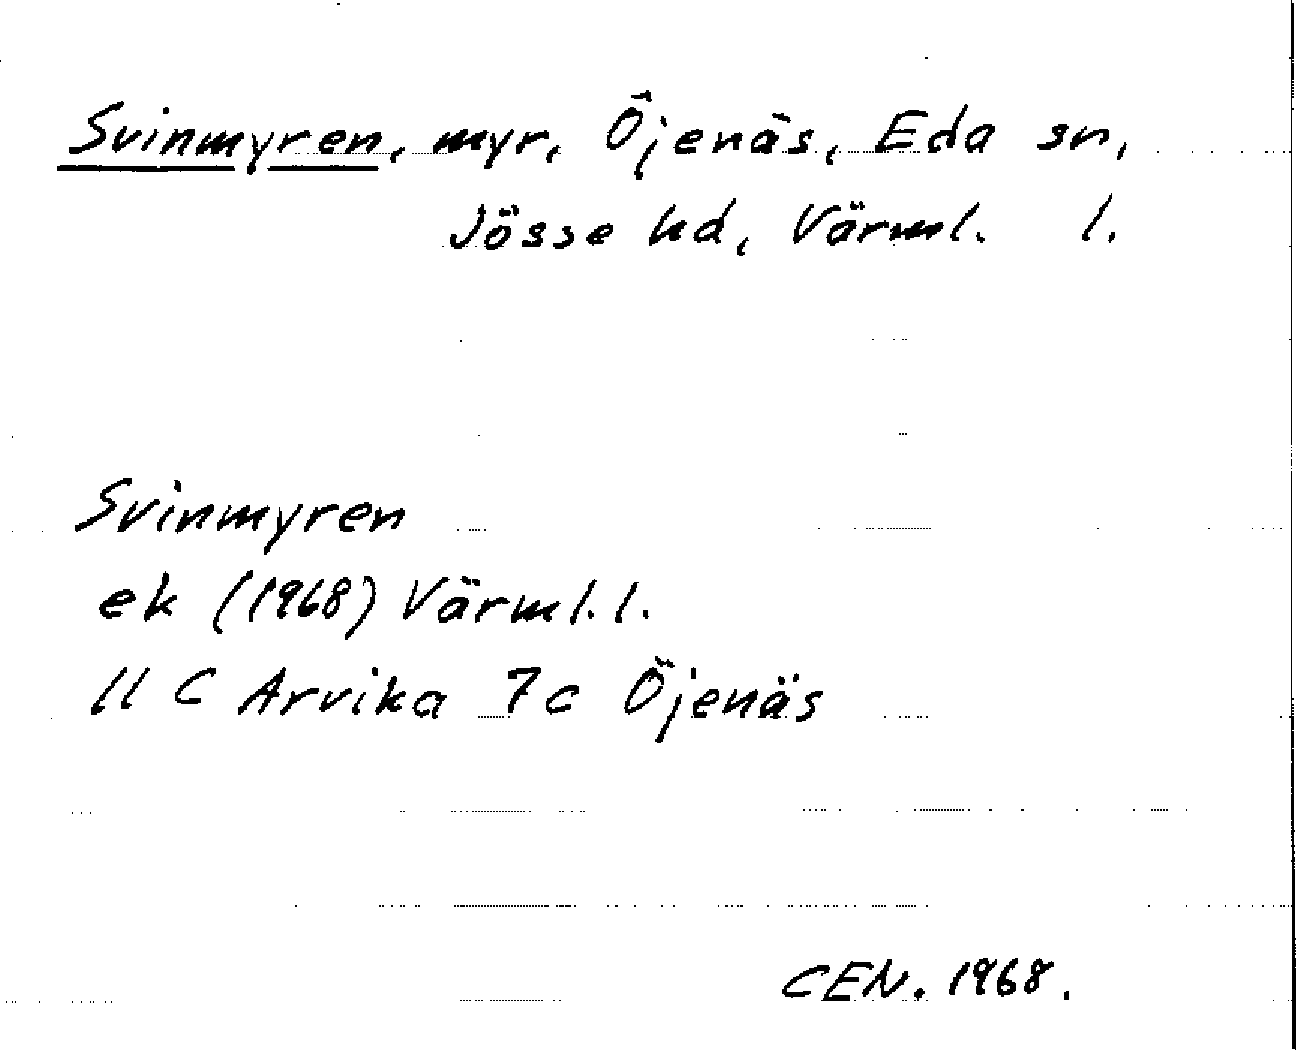 Svinmyren, myr, Öjenäs, Eda sn,
Jösse hd, Värml. l.
Svinmyren
ek (1968) Värml. l.
11 C Arvika 7c Öjenäs
CEN. 1968.